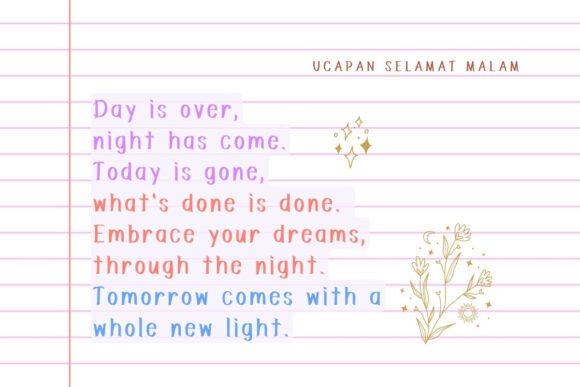 UCAPAN SELAMAT MALAM
Day is over,
night has come.
Today is gone,
what's done is done.
Embrace your dreams,
through the night.
Tomorrow comes with a
whole new light.